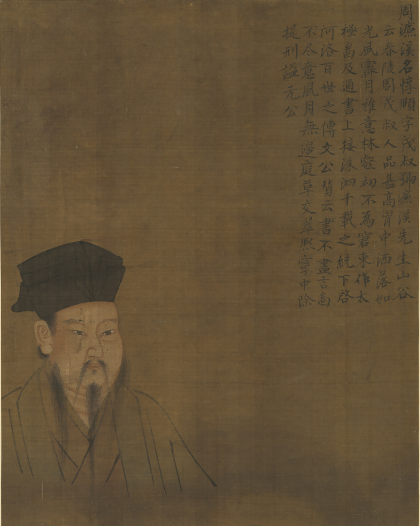 周濂溪名惇頤字茂叔號濂溪先生山谷
云春陵周茂叔人品甚高胷中洒落如
光風霽月雅意林壑初不為官束作太
極啚及通書上接洙泗千載之統下啓
河洛百世之傳文公贊云書不盡言啚
不尽意風月無邊庭草交萃熙寧中除
提刑謚元公